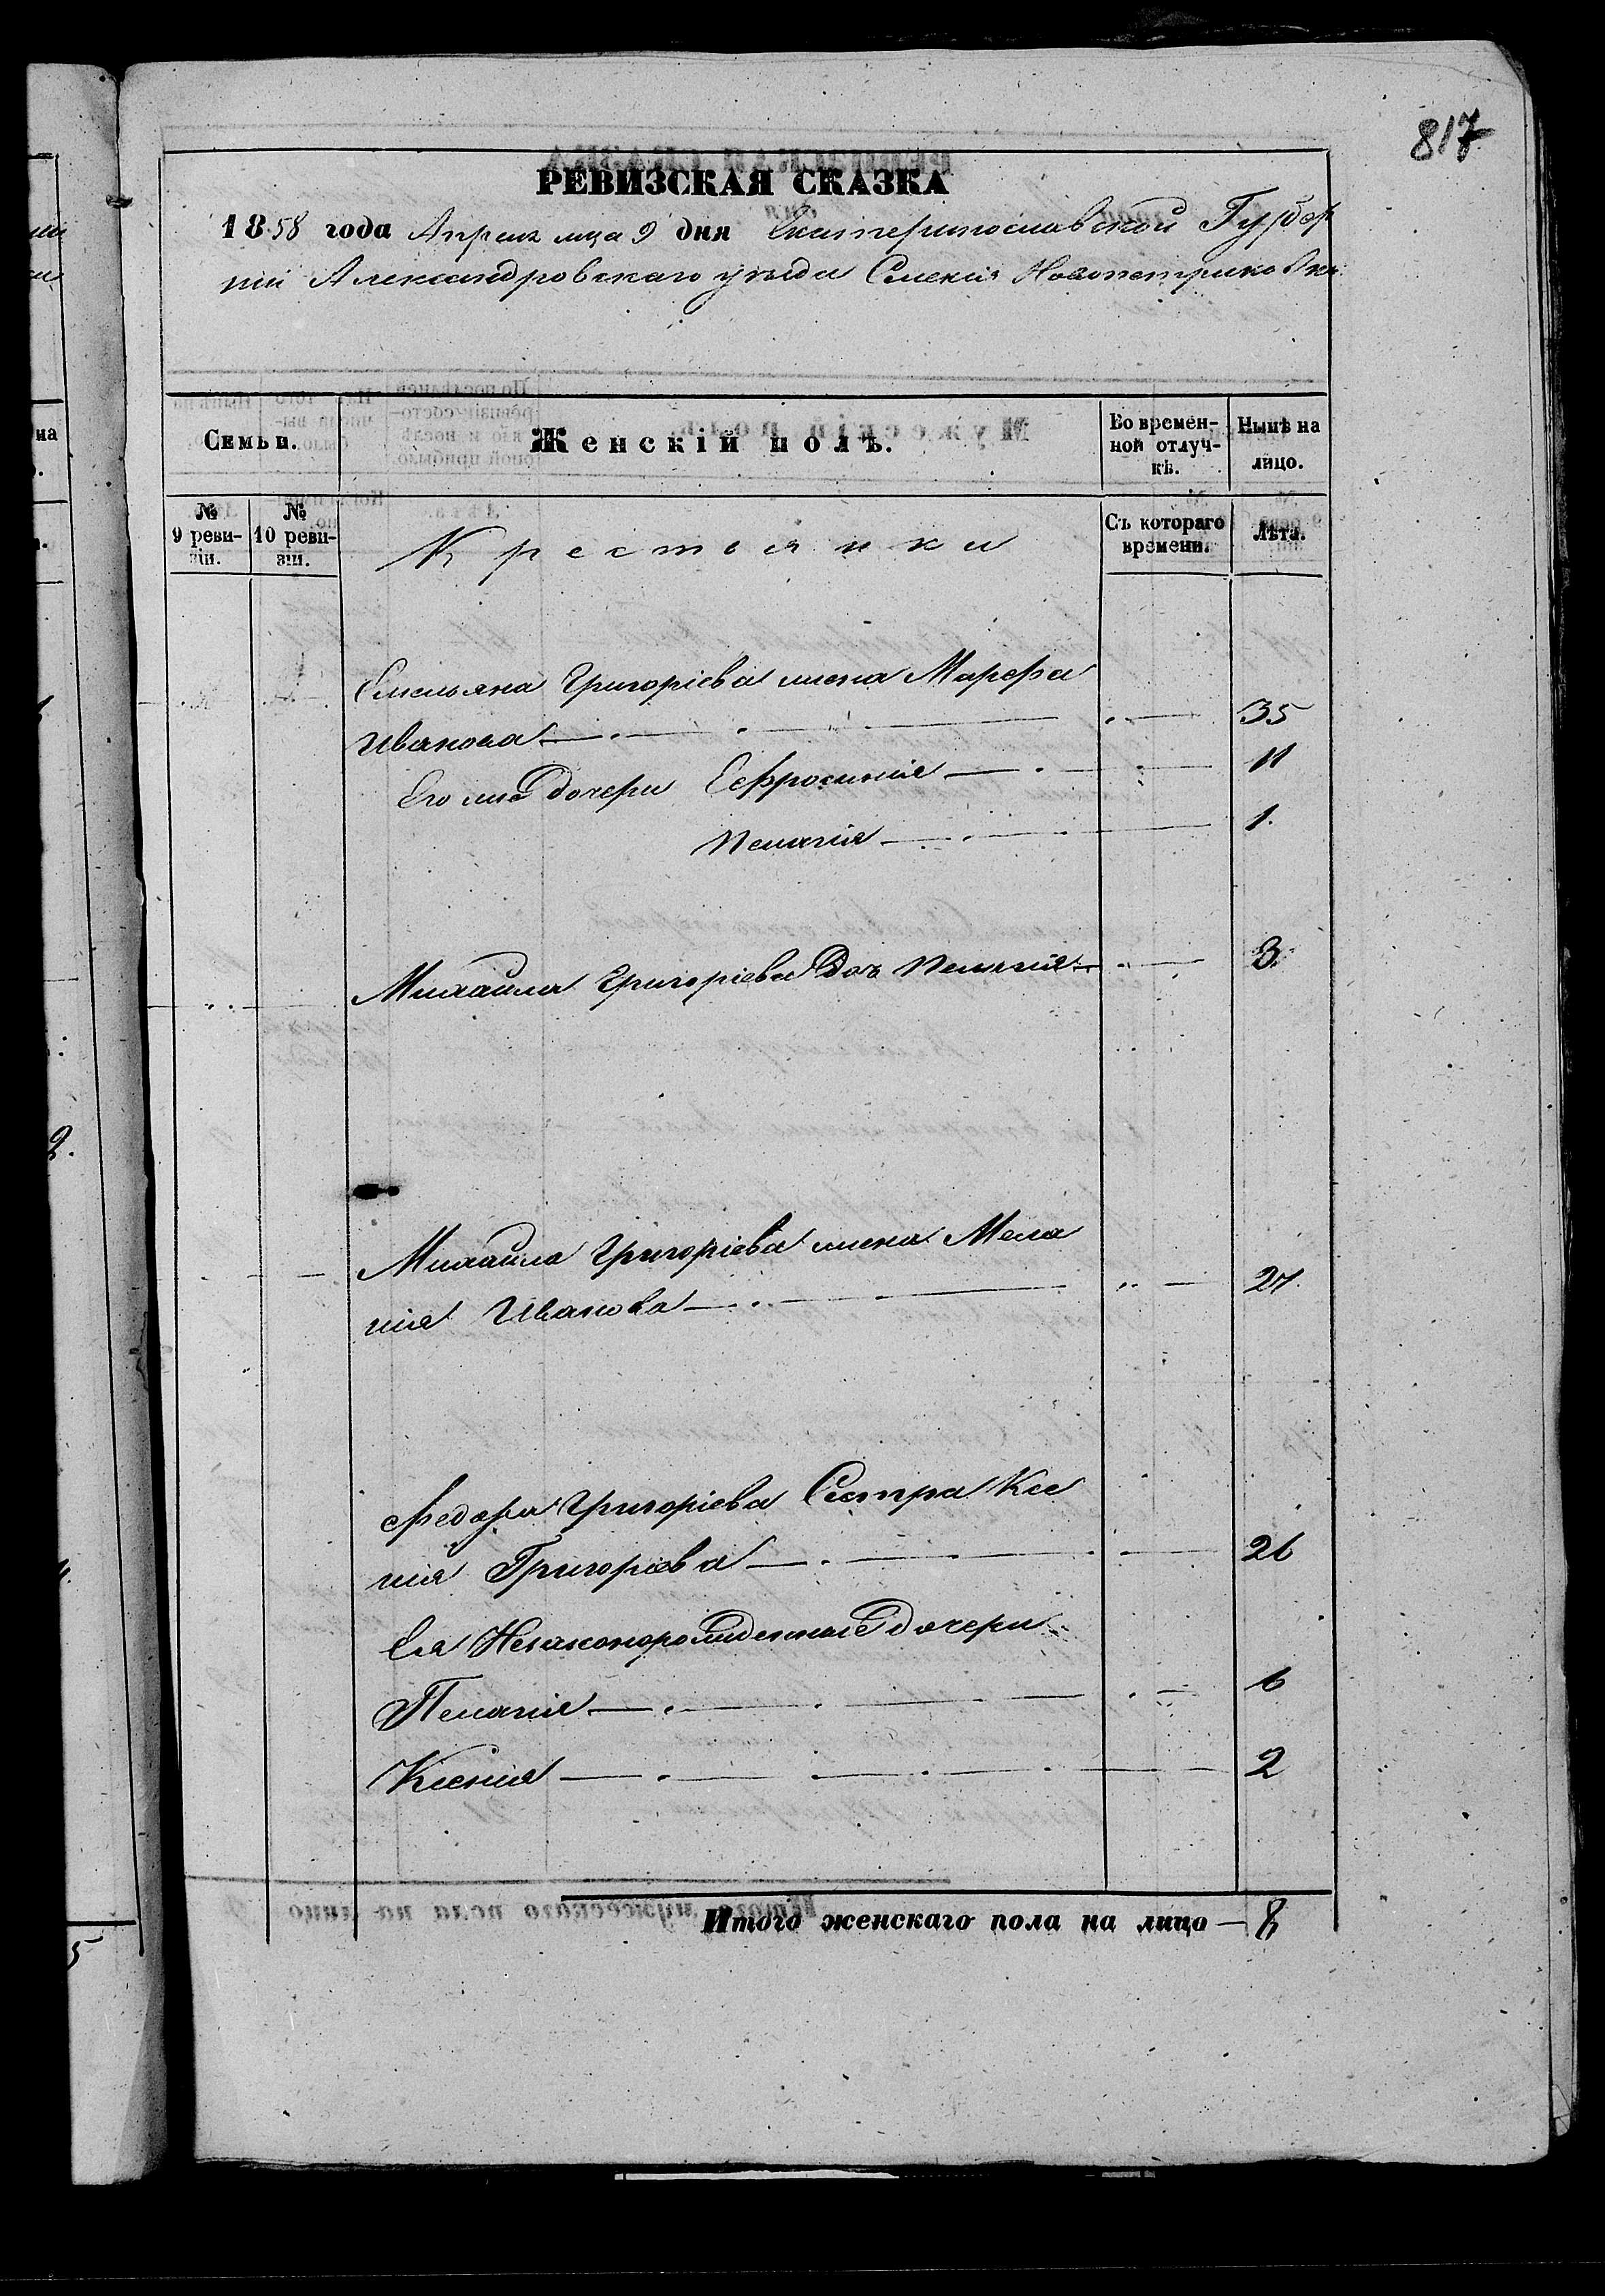 817
РЕВИЗСКАЯ СКАЗКА
1858 года Апреля мца 9 дня Екатеринославской Губер
ніи Александровскаго уезда Селенія Новопетриковки
Семьи.
Женскій полъ.
Во времен-
ной отлуч-
кѣ.
Нынѣ на
лицо.
№
9 реви-
зіи.
№
10 реви-
зіи.
Крестьянки
Съ котораго
времени.
Лѣта.
Емельяна Григоріева жена Марфа
Иванова 35
Его же дочери Евфросинія 11
Пелагія 1.
Михаила Григоріева Дочь Пелагія 3.
Михаила Григоріева жена Мела
нія Иванова 27.
Федора Григоріева Сестра Ксе
нія Григоріева 26
Ея Незаконорожденные дочери
Пелагія 6
Ксенія 2
Итого женскаго пола на лицо — 8